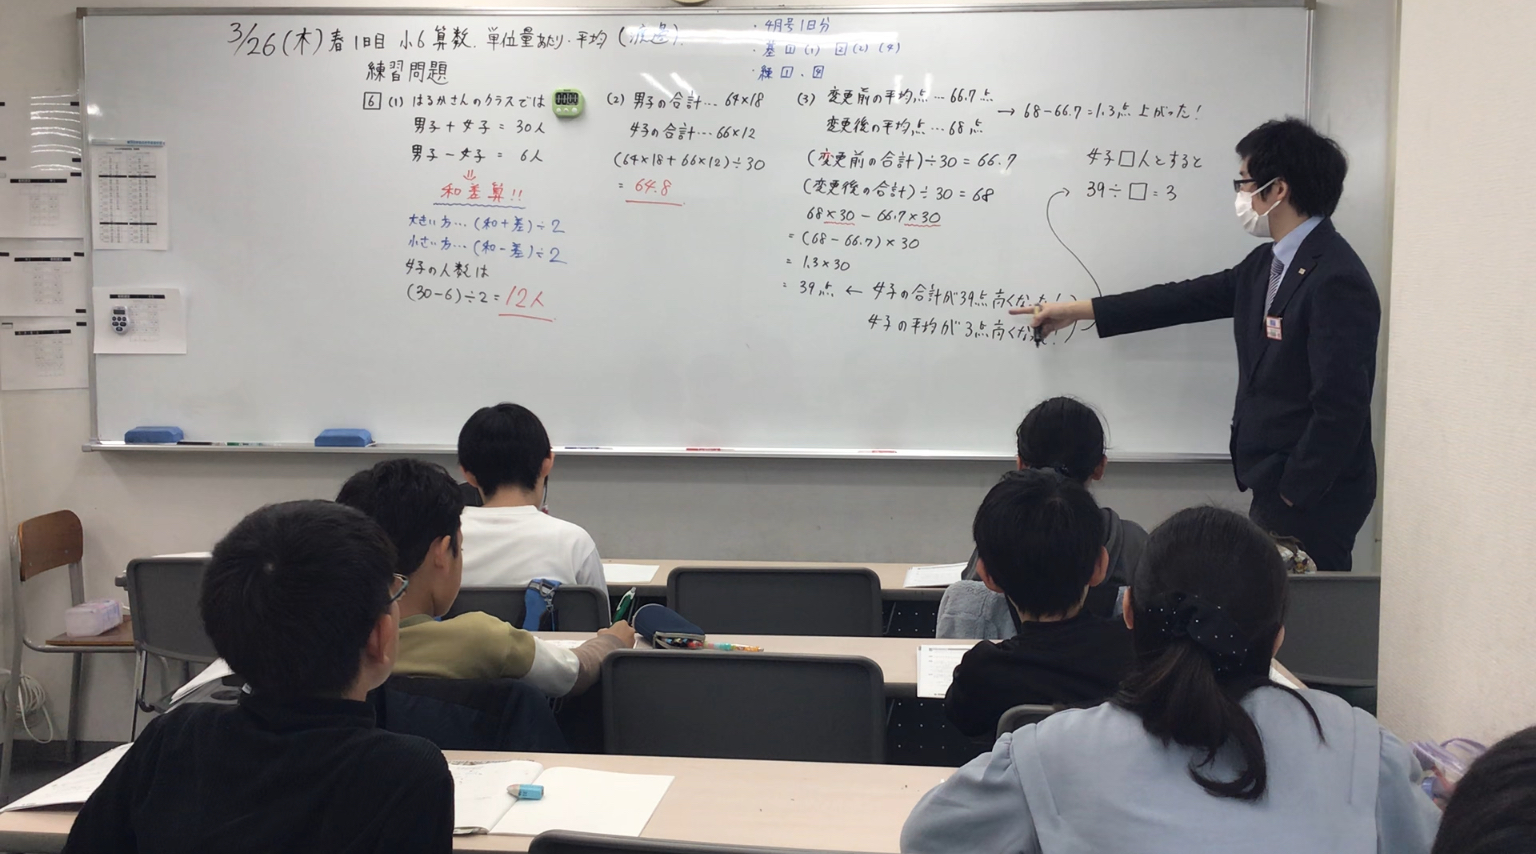 3/26(木)春1日目 小6算数. 単位量あたり・平均 (渡邉).
練習問題
・4月号1日分
・基 1 (1) 2 (2) (4)
・練 1 . 4
6 (1) はるかさんのクラスでは
男子+女子 = 30人
男子-女子 = 6人
⇓
和差算!!
大きい方…(和+差)÷2
小さい方…(和-差)÷2
女子の人数は
(30-6)÷2=12人
(2) 男子の合計… 64×18
女子の合計…66×12
(64×18+66×12)÷30
= 64.8
(3) 変更前の平均点…66.7点
変更後の平均点…68点
→ 68-66.7=1.3点 上がった!
(変更前の合計)÷30=66.7
(変更後の合計)÷30=68
68×30-66.7×30
=(68-66.7)×30
= 1.3×30
= 39点 ← 女子の合計が39点高くなった!
女子の平均が3点高くな
女子□人とすると
39÷□=3